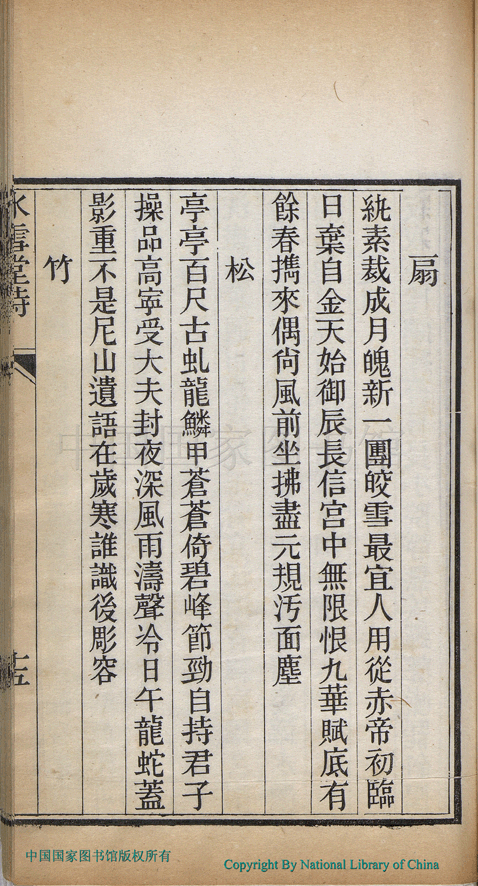 扇
紈素裁成月魄新一團皎雪最宜人用從赤帝初臨
日棄自金天始御辰長信宮中無限恨九華賦底有
餘春攜來偶尙風前坐拂盡元規汚面塵
松
亭亭百尺古虬龍鱗甲蒼蒼倚碧峰節勁自持君子
操品高寧受大夫封夜深風雨濤聲冷日午龍蛇蓋
影重不是尼山遺語在歲寒誰識後彫容
竹
冰雪堂詩
十五
中国国家图书馆
中国国家图书馆版权所有
Copyright By National Library of China